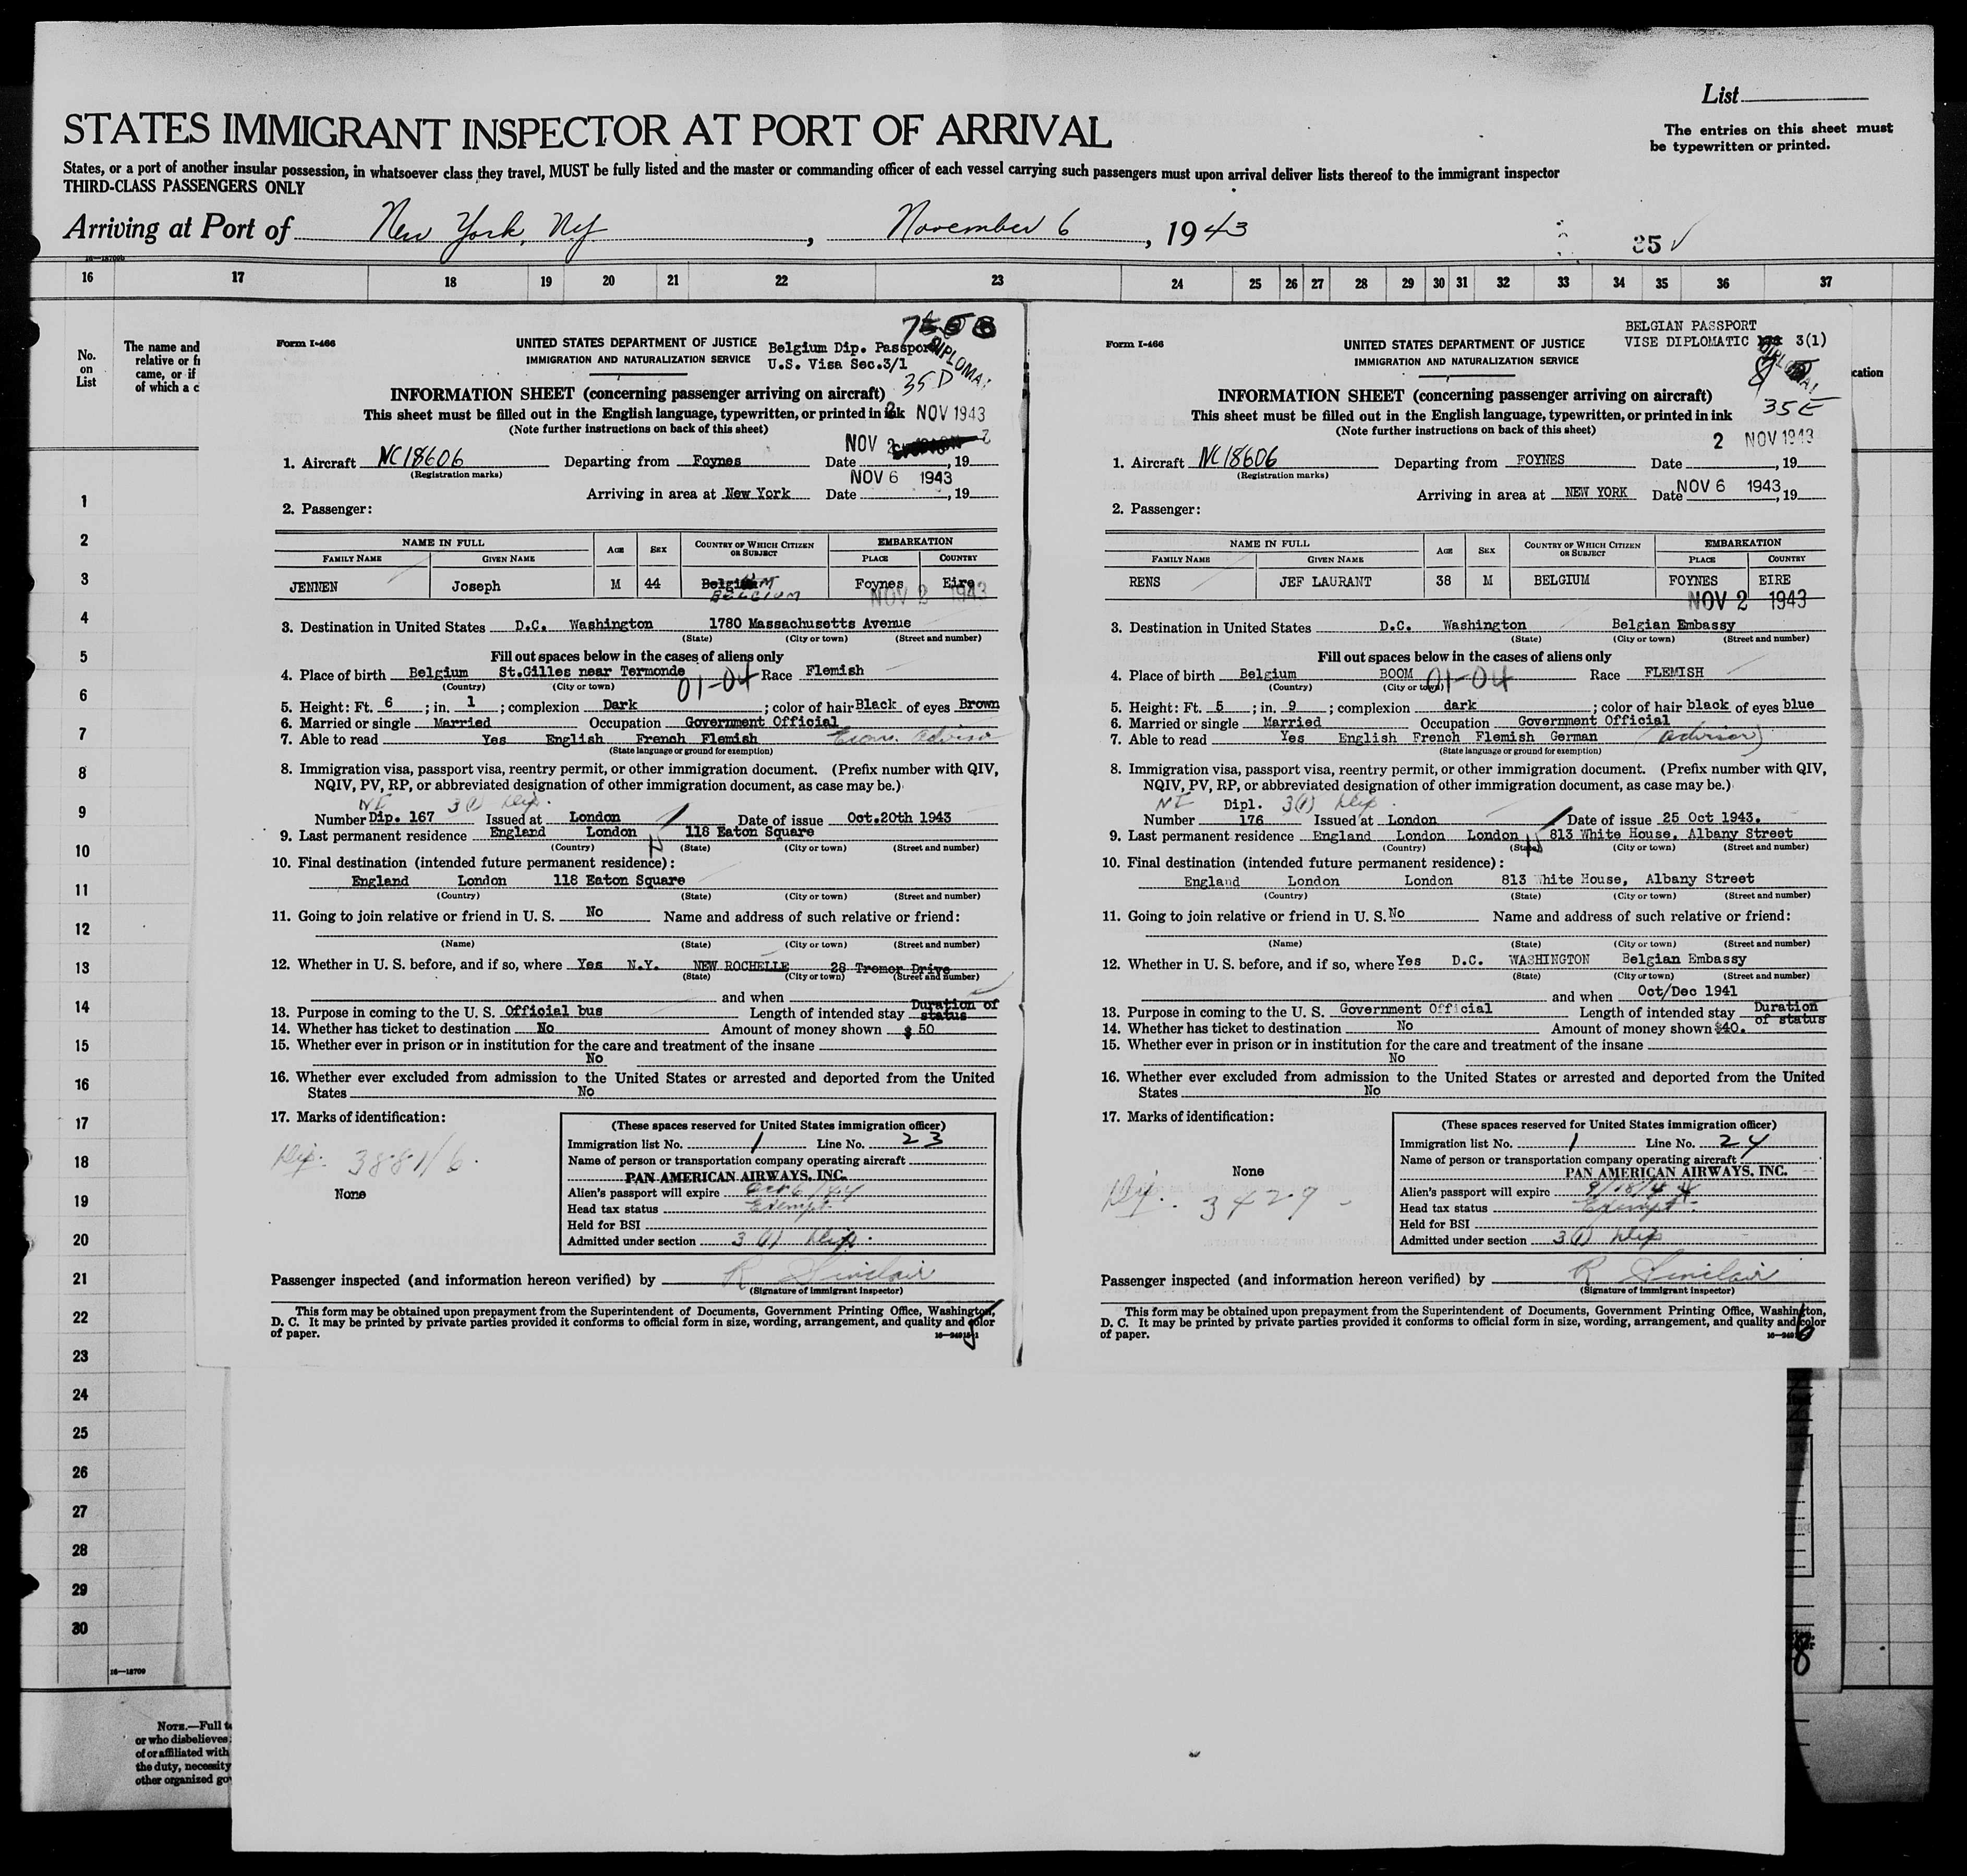 List
STATES IMMIGRANT INSPECTOR AT PORT OF ARRIVAL
The entries on this sheet must
be typewritten or printed.
States, or a port of another insular possession, in whatsoever class they travel, MUST be fully listed and the master or commanding officer of each vessel carrying such passengers must upon arrival deliver lists thereof to the immigrant inspector
THIRD-CLASS PASSENGERS ONLY
Arriving at Port of New York, Ny, November 6, 1943
35
16 17 18 19 20 21 22 23 24 25 26 27 28 29 30 31 32 33 34 35 36 37
No.
on
List
The name and
relative or f
came, or if
of which a c
cation
1
2
3
4
5
6
7
8
9
10
11
12
13
14
15
16
17
18
19
20
21
22
23
24
25
26
27
28
29
30
16—18709
NOTE.—Full t
or who disbelieves
of or affiliated with
the duty, necessity
other organized go
Form I-466
UNITED STATES DEPARTMENT OF JUSTICE
IMMIGRATION AND NATURALIZATION SERVICE
Belgium Dip. Passport
U.S. Visa Sec.3/1
35D
INFORMATION SHEET (concerning passenger arriving on aircraft)
This sheet must be filled out in the English language, typewritten, or printed in ink
2 NOV 1943
(Note further instructions on back of this sheet)
NOV 2
1. Aircraft NC18606 Departing from Foynes Date , 19
(Registration marks)
NOV 6 1943
Arriving in area at New York Date , 19
2. Passenger:
NAME IN FULL AGE SEX COUNTRY OF WHICH CITIZEN OR SUBJECT EMBARKATION
FAMILY NAME GIVEN NAME PLACE COUNTRY
JENNEN Joseph M 44 BELGIUM Foynes Eire
NOV 2 1943
3. Destination in United States D.C. Washington 1780 Massachusetts Avenue
(State) (City or town) (Street and number)
Fill out spaces below in the cases of aliens only
4. Place of birth Belgium St.Gilles near Termonde Race Flemish
(Country) (City or town) 01-04
5. Height: Ft. 6 ; in. 1 ; complexion Dark ; color of hair Black of eyes Brown
6. Married or single Married Occupation Government Official
7. Able to read Yes English French Flemish
(State language or ground for exemption)
8. Immigration visa, passport visa, reentry permit, or other immigration document. (Prefix number with QIV,
NQIV, PV, RP, or abbreviated designation of other immigration document, as case may be.)
3(1) Dip.
Number Dip. 167 Issued at London Date of issue Oct.20th 1943
9. Last permanent residence England London 118 Eaton Square
(Country) (State) (City or town) (Street and number)
10. Final destination (intended future permanent residence):
England London 118 Eaton Square
(Country) (State) (City or town) (Street and number)
11. Going to join relative or friend in U. S. No Name and address of such relative or friend:
(Name) (State) (City or town) (Street and number)
12. Whether in U. S. before, and if so, where Yes N.Y. NEW ROCHELLE 28 Tromor Drive
(State) (City or town) (Street and number)
and when
13. Purpose in coming to the U. S. Official bus Length of intended stay Duration of status
14. Whether has ticket to destination No Amount of money shown $ 50
15. Whether ever in prison or in institution for the care and treatment of the insane
No
16. Whether ever excluded from admission to the United States or arrested and deported from the United
States No
17. Marks of identification:
Dip. 3881/6.
None
(These spaces reserved for United States immigration officer)
Immigration list No. 1 Line No. 23
Name of person or transportation company operating aircraft
PAN AMERICAN AIRWAYS, INC.
Alien's passport will expire
Head tax status Exempt
Held for BSI
Admitted under section 3(1) Dip.
Passenger inspected (and information hereon verified) by R Sinclair
(Signature of immigrant inspector)
This form may be obtained upon prepayment from the Superintendent of Documents, Government Printing Office, Washington,
D. C. It may be printed by private parties provided it conforms to official form in size, wording, arrangement, and quality and color
of paper.
Form I-466
UNITED STATES DEPARTMENT OF JUSTICE
IMMIGRATION AND NATURALIZATION SERVICE
BELGIAN PASSPORT
VISE DIPLOMATIC 3(1)
35E
INFORMATION SHEET (concerning passenger arriving on aircraft)
This sheet must be filled out in the English language, typewritten, or printed in ink
(Note further instructions on back of this sheet)
2 NOV 1943
1. Aircraft NC18606 Departing from FOYNES Date , 19
(Registration marks)
NOV 6 1943
Arriving in area at NEW YORK Date , 19
2. Passenger:
NAME IN FULL AGE SEX COUNTRY OF WHICH CITIZEN OR SUBJECT EMBARKATION
FAMILY NAME GIVEN NAME PLACE COUNTRY
RENS JEF LAURANT 38 M BELGIUM FOYNES EIRE
NOV 2 1943
3. Destination in United States D.C. Washington Belgian Embassy
(State) (City or town) (Street and number)
Fill out spaces below in the cases of aliens only
4. Place of birth Belgium BOOM Race FLEMISH
(Country) (City or town) 01-04
5. Height: Ft. 5 ; in. 9 ; complexion dark ; color of hair black of eyes blue
6. Married or single Married Occupation Government Official
7. Able to read Yes English French Flemish German (advisor)
(State language or ground for exemption)
8. Immigration visa, passport visa, reentry permit, or other immigration document. (Prefix number with QIV,
NQIV, PV, RP, or abbreviated designation of other immigration document, as case may be.)
Dipl. 3(1) Dip.
Number 176 Issued at London Date of issue 25 Oct 1943.
9. Last permanent residence England London London 813 White House, Albany Street
(Country) (State) (City or town) (Street and number)
10. Final destination (intended future permanent residence):
England London London 813 White House, Albany Street
(Country) (State) (City or town) (Street and number)
11. Going to join relative or friend in U. S. No Name and address of such relative or friend:
(Name) (State) (City or town) (Street and number)
12. Whether in U. S. before, and if so, where Yes D.C. WASHINGTON Belgian Embassy
(State) (City or town) (Street and number)
and when Oct/Dec 1941
13. Purpose in coming to the U. S. Government Official Length of intended stay Duration of status
14. Whether has ticket to destination No Amount of money shown $40.
15. Whether ever in prison or in institution for the care and treatment of the insane
No
16. Whether ever excluded from admission to the United States or arrested and deported from the United
States No
17. Marks of identification:
None
Dip. 3429
(These spaces reserved for United States immigration officer)
Immigration list No. 1 Line No. 24
Name of person or transportation company operating aircraft
PAN AMERICAN AIRWAYS, INC.
Alien's passport will expire 9/18/44
Head tax status Exempt
Held for BSI
Admitted under section 3(1) Dip
Passenger inspected (and information hereon verified) by R Sinclair
(Signature of immigrant inspector)
This form may be obtained upon prepayment from the Superintendent of Documents, Government Printing Office, Washington,
D. C. It may be printed by private parties provided it conforms to official form in size, wording, arrangement, and quality and color
of paper.